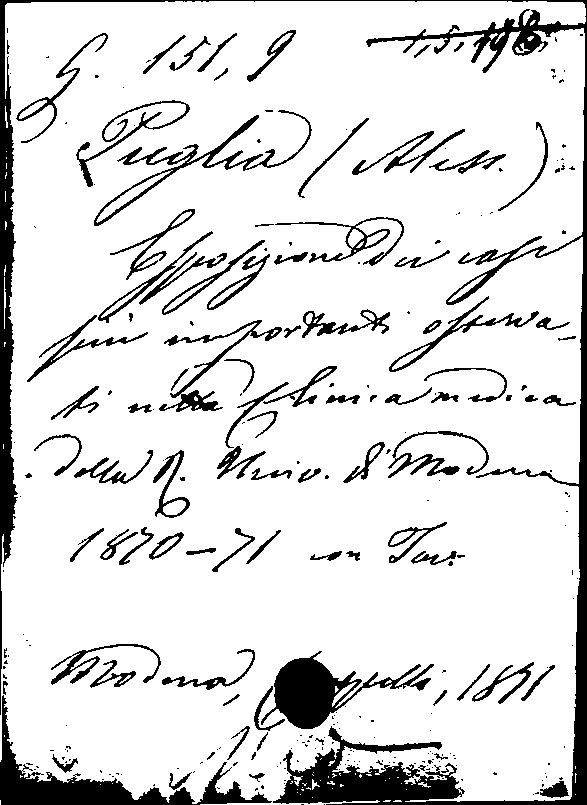 G. 151, 9
Puglia (Aless.)
Esposizione dei casi
più importanti osserva-
ti nella Clinica medica
della R. Univ. di Modena
1870–71 con Tav.
Modena, 1871